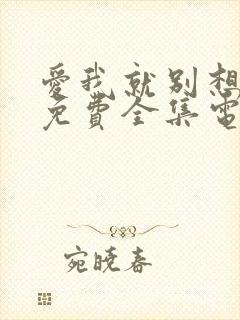 愛我就別想
免費全集電
宛曉春